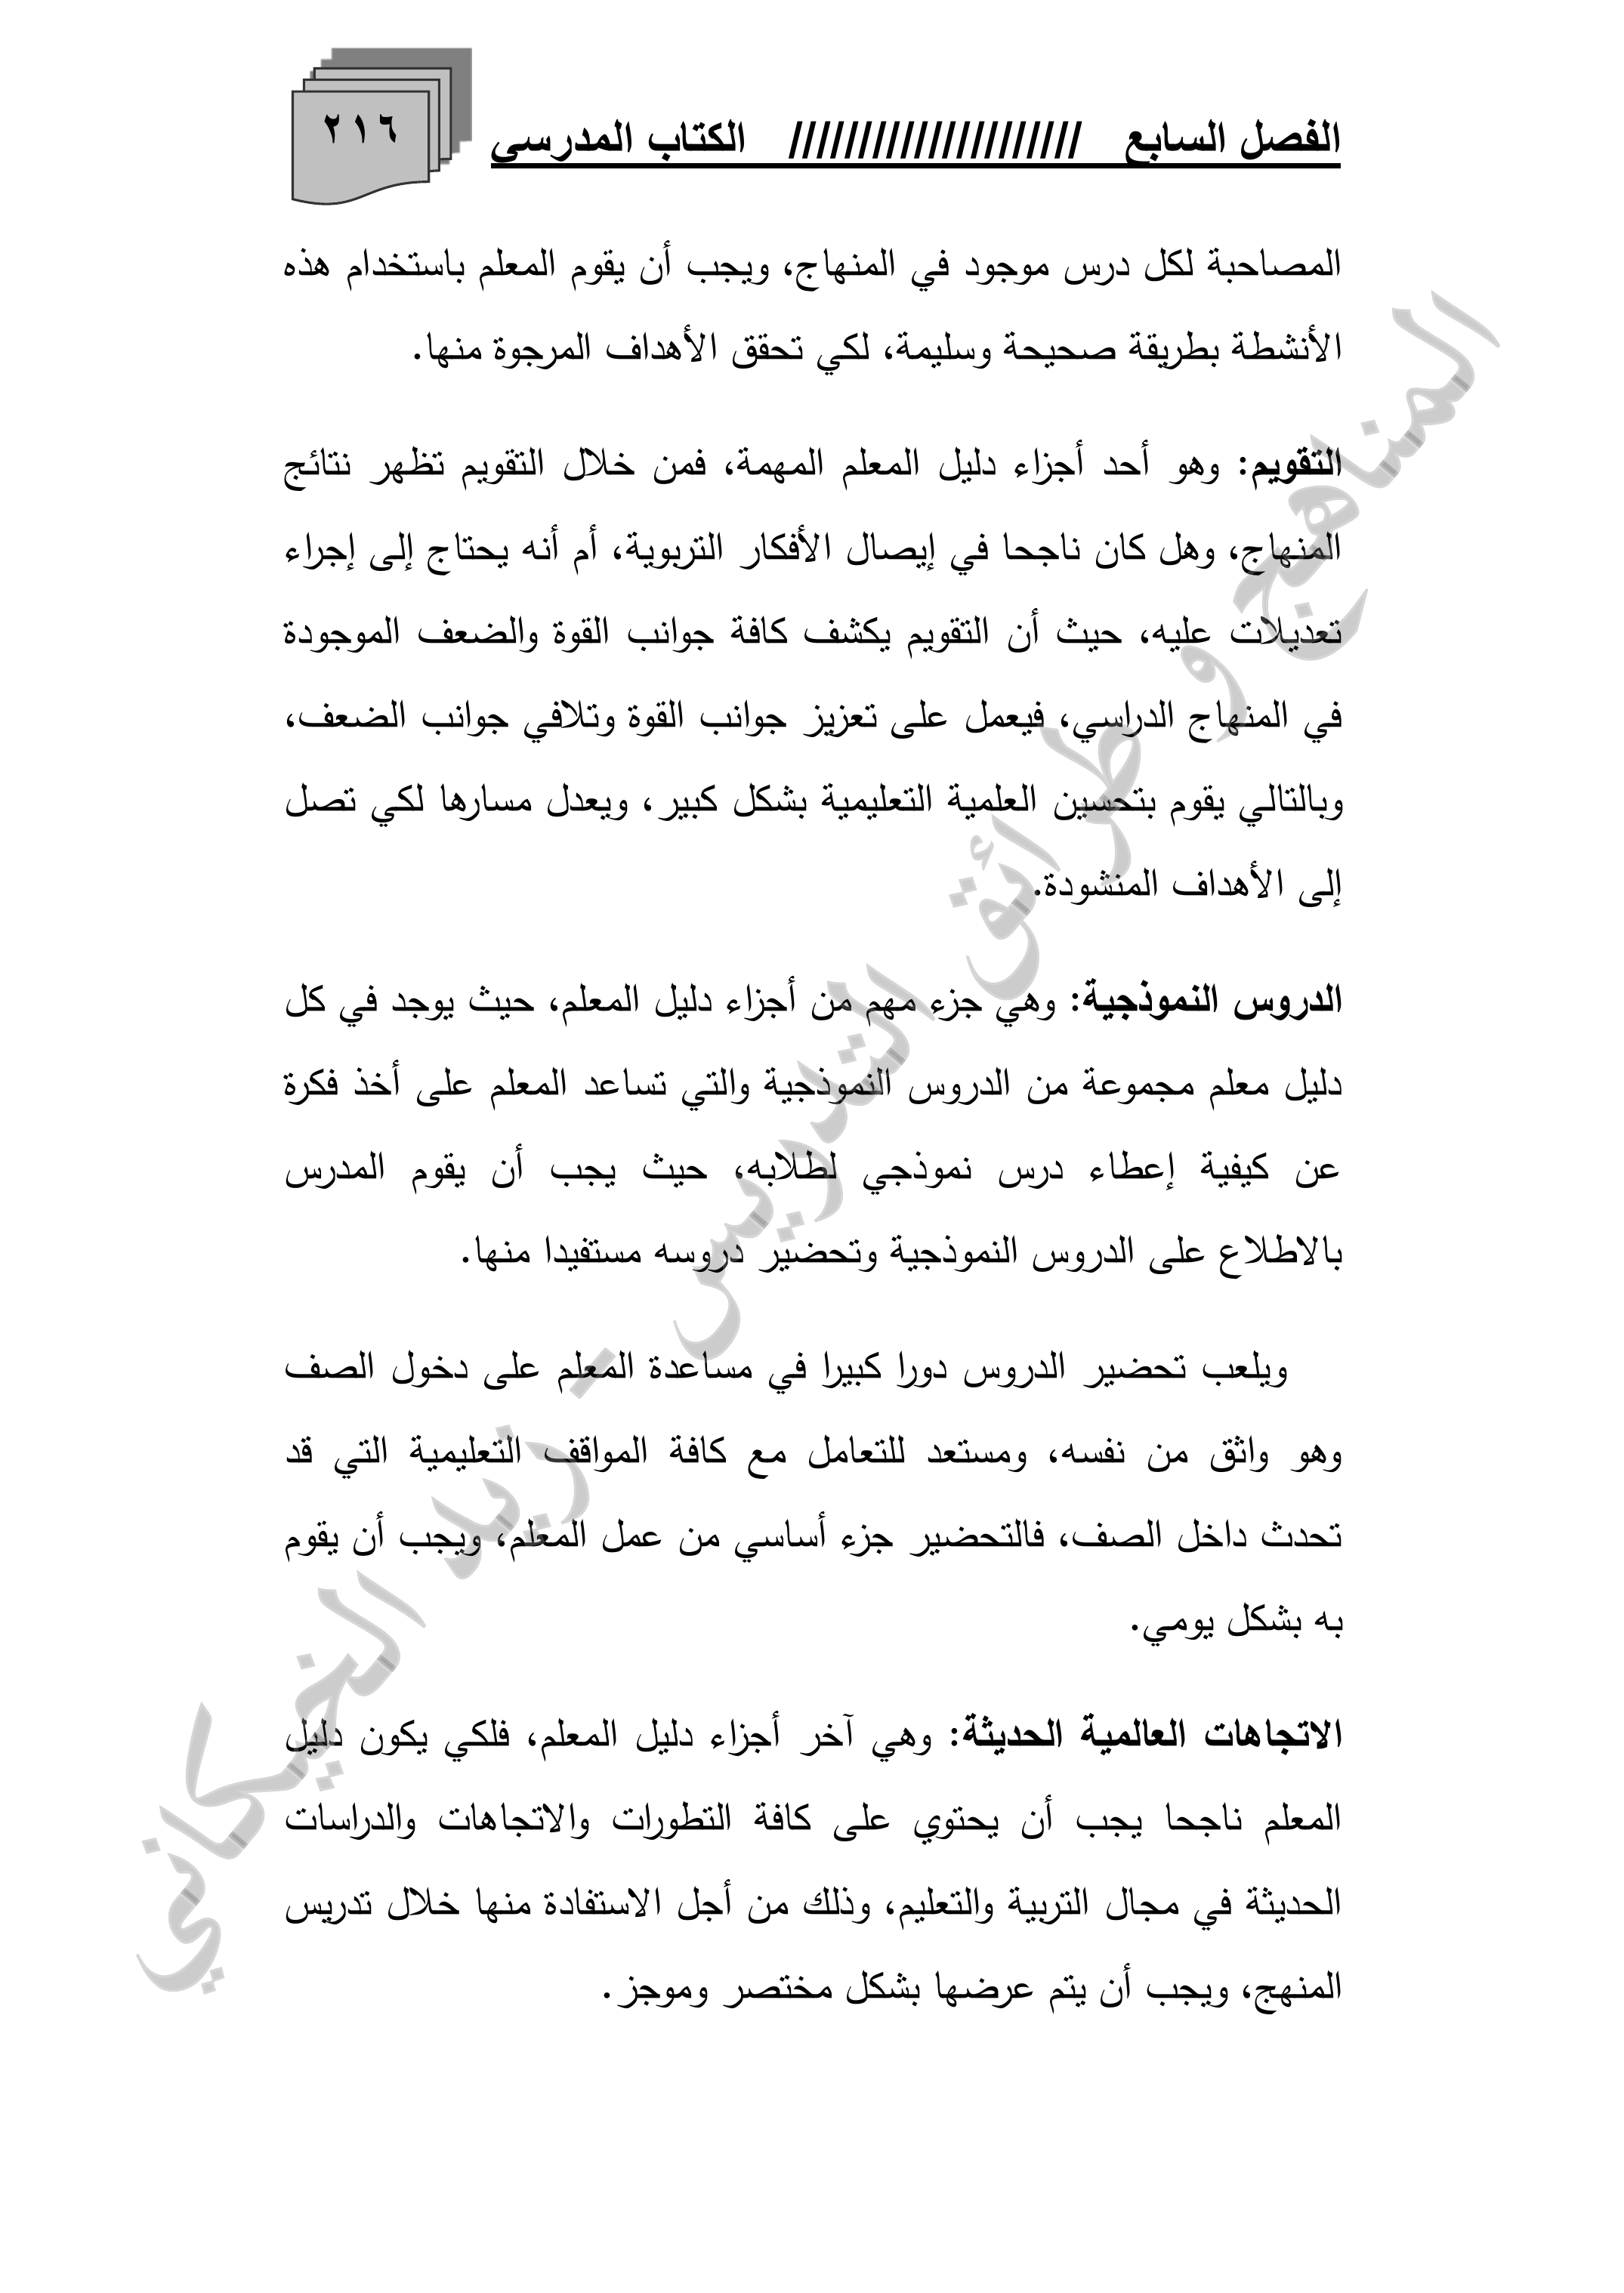 الفصل السابع ///////////////////// الكتاب المدرسي
٢١٦
المصاحبة لكل درس موجود في المنهاج، ويجب أن يقوم المعلم باستخدام هذه
الأنشطة بطريقة صحيحة وسليمة، لكي تحقق الأهداف المرجوة منها.
التقويم: وهو أحد أجزاء دليل المعلم المهمة، فمن خلال التقويم تظهر نتائج
المنهاج، وهل كان ناجحا في إيصال الأفكار التربوية، أم أنه يحتاج إلى إجراء
تعديلات عليه، حيث أن التقويم يكشف كافة جوانب القوة والضعف الموجودة
في المنهاج الدراسي، فيعمل على تعزيز جوانب القوة وتلافي جوانب الضعف،
وبالتالي يقوم بتحسين العلمية التعليمية بشكل كبير، ويعدل مسارها لكي تصل
إلى الأهداف المنشودة.
الدروس النموذجية: وهي جزء مهم من أجزاء دليل المعلم، حيث يوجد في كل
دليل معلم مجموعة من الدروس النموذجية والتي تساعد المعلم على أخذ فكرة
عن كيفية إعطاء درس نموذجي لطلابه، حيث يجب أن يقوم المدرس
بالاطلاع على الدروس النموذجية وتحضير دروسه مستفيدا منها.
ويلعب تحضير الدروس دورا كبيرا في مساعدة المعلم على دخول الصف
وهو واثق من نفسه، ومستعد للتعامل مع كافة المواقف التعليمية التي قد
تحدث داخل الصف، فالتحضير جزء أساسي من عمل المعلم، ويجب أن يقوم
به بشكل يومي.
الاتجاهات العالمية الحديثة: وهي آخر أجزاء دليل المعلم، فلكي يكون دليل
المعلم ناجحا يجب أن يحتوي على كافة التطورات والاتجاهات والدراسات
الحديثة في مجال التربية والتعليم، وذلك من أجل الاستفادة منها خلال تدريس
المنهج، ويجب أن يتم عرضها بشكل مختصر وموجز.
المناهج و طرائق التدريس - زيد الخيكاني